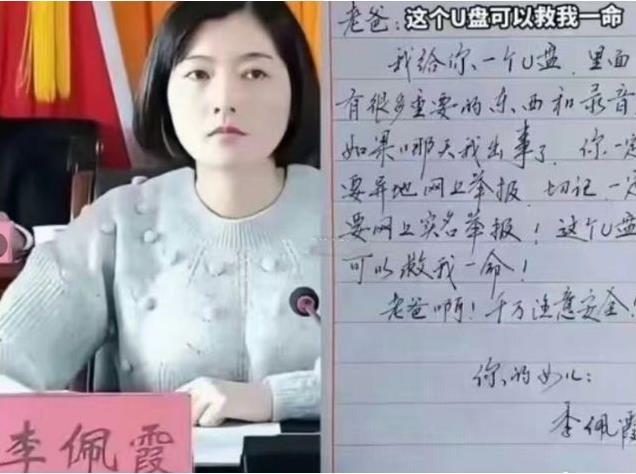 李佩霞
这个U盘可以救我一命
老爸:
我给你一个U盘,里面
有很多重要的东西和录音
如果哪天我出事了,你一定
要异地网上举报,切记,一定
要网上实名举报!这个U盘
可以救我一命!
老爸啊!千万注意安全!
你的女儿:
李佩霞